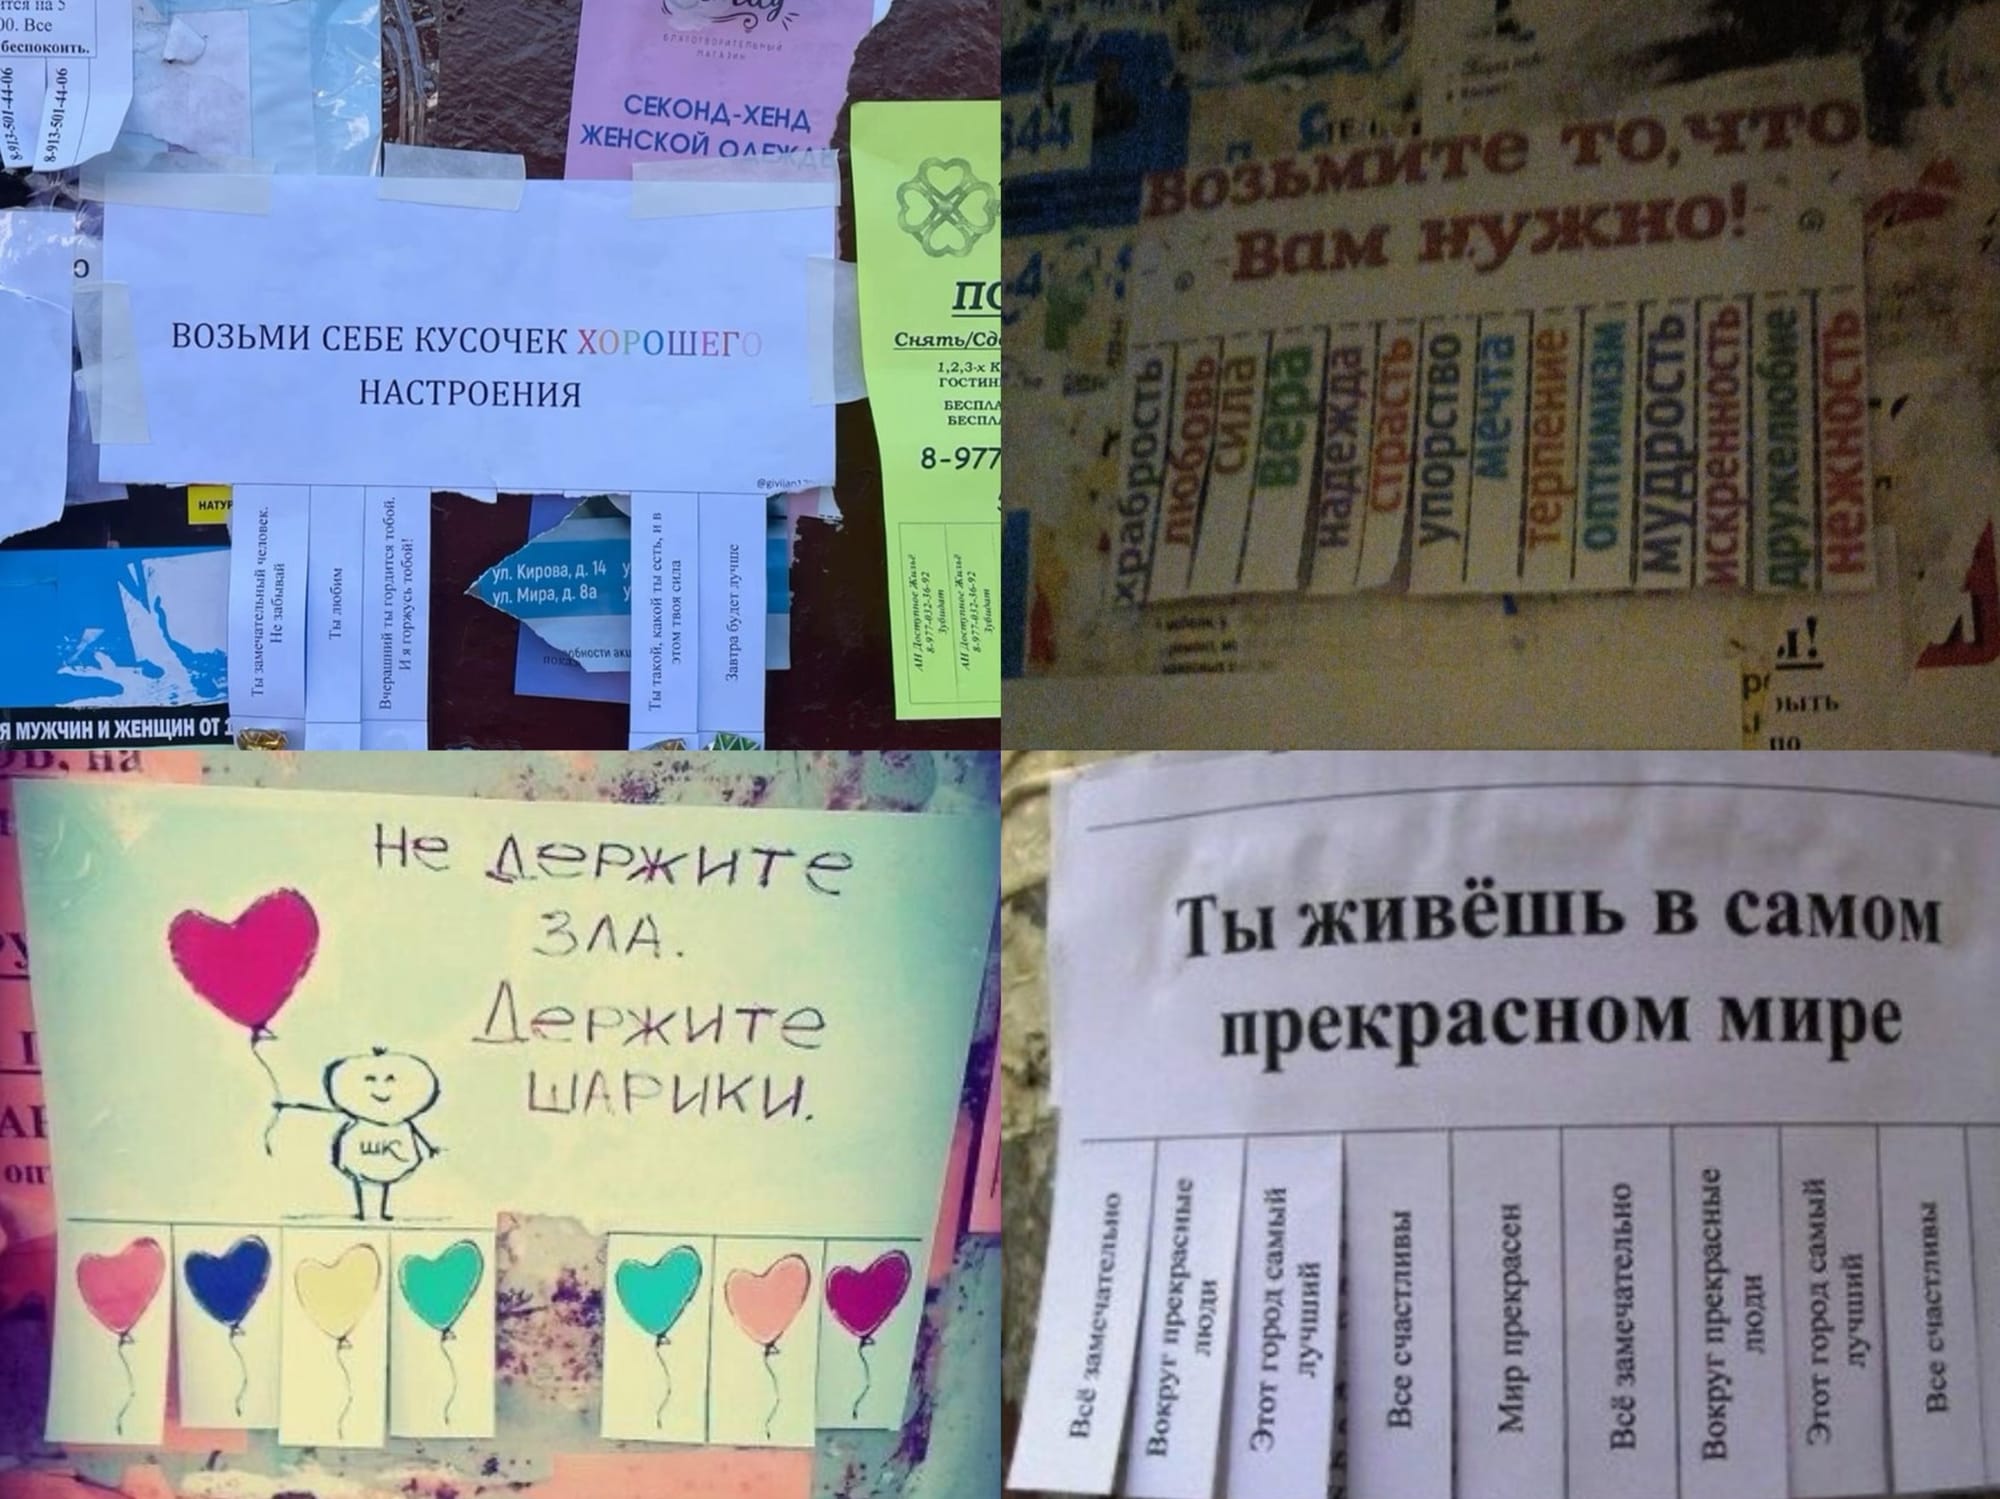 ится на 5
00. Все
беспокоить.
8-913-501-44-06
8-913-501-44-06
БЛАГОТВОРИТЕЛЬНЫЙ
МАГАЗИН
СЕКОНД-ХЕНД
ЖЕНСКОЙ ОДЕЖДЫ
ВОЗЬМИ СЕБЕ КУСОЧЕК ХОРОШЕГО
НАСТРОЕНИЯ
@givijan1
НАТУР
Ты замечательный человек.
Не забывай
Ты любим
Вчерашний ты гордится тобой.
И я горжусь тобой!
Ты такой, какой ты есть, и в
этом твоя сила
Завтра будет лучше
ул. Кирова, д. 14
ул. Мира, д. 8а
Я МУЖЧИН И ЖЕНЩИН ОТ 1
ПО
Снять/Сд
1,2,3-х К
ГОСТИН
БЕСПЛА
БЕСПЛА
8-977
АН Доступное Жильё
8-977-032-36-92
Зубидат
АН Доступное Жильё
8-977-032-36-92
Зубидат
344
Возьмите то,что
вам нужно!
храбрость
любовь
сила
вера
надежда
страсть
упорство
мечта
терпение
оптимизм
мудрость
искренность
дружелюбие
нежность
Не держите
зла.
Держите
шарики.
шк
Ты живёшь в самом
прекрасном мире
Всё замечательно
Вокруг прекрасные
люди
Этот город самый
лучший
Все счастливы
Мир прекрасен
Всё замечательно
Вокруг прекрасные
люди
Этот город самый
лучший
Все счастливы